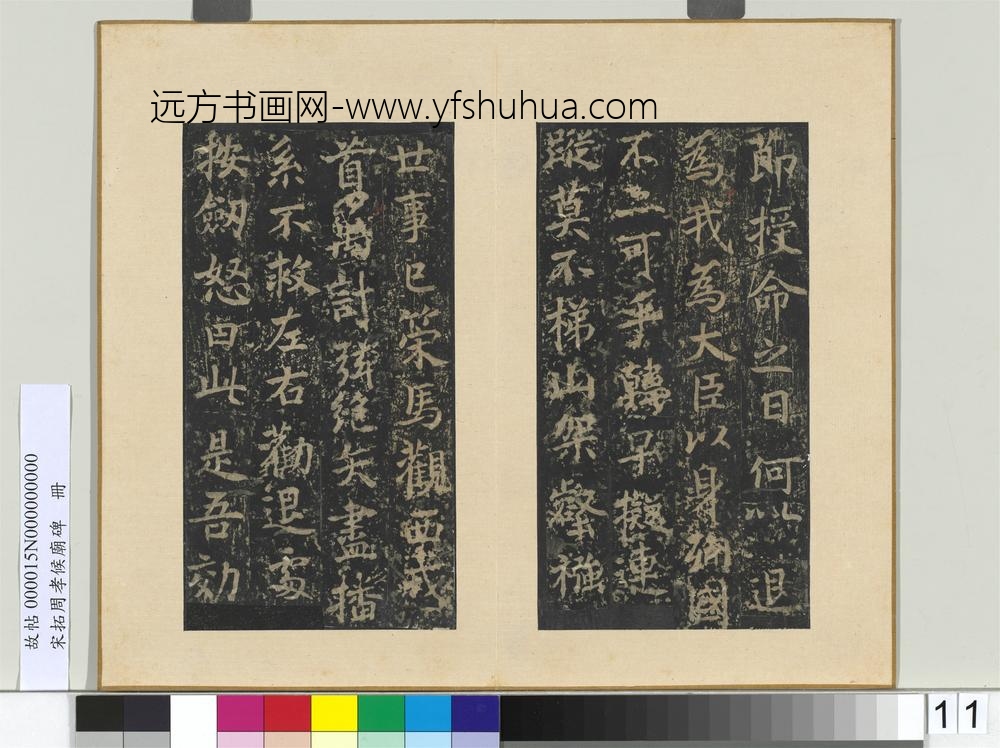 远方书画网-www.yfshuhua.com
節授命之日何以退
為我為大臣以身殉國
不二可乎轉子擬連
蹤莫不梯山架壑襁
廿事已策馬觀西戎
首萬計弦絶矢盡播
系不救左右勸退處
按劒怒曰此是吾効
故帖 000015N000000000
宋拓周孝候廟碑 冊
11